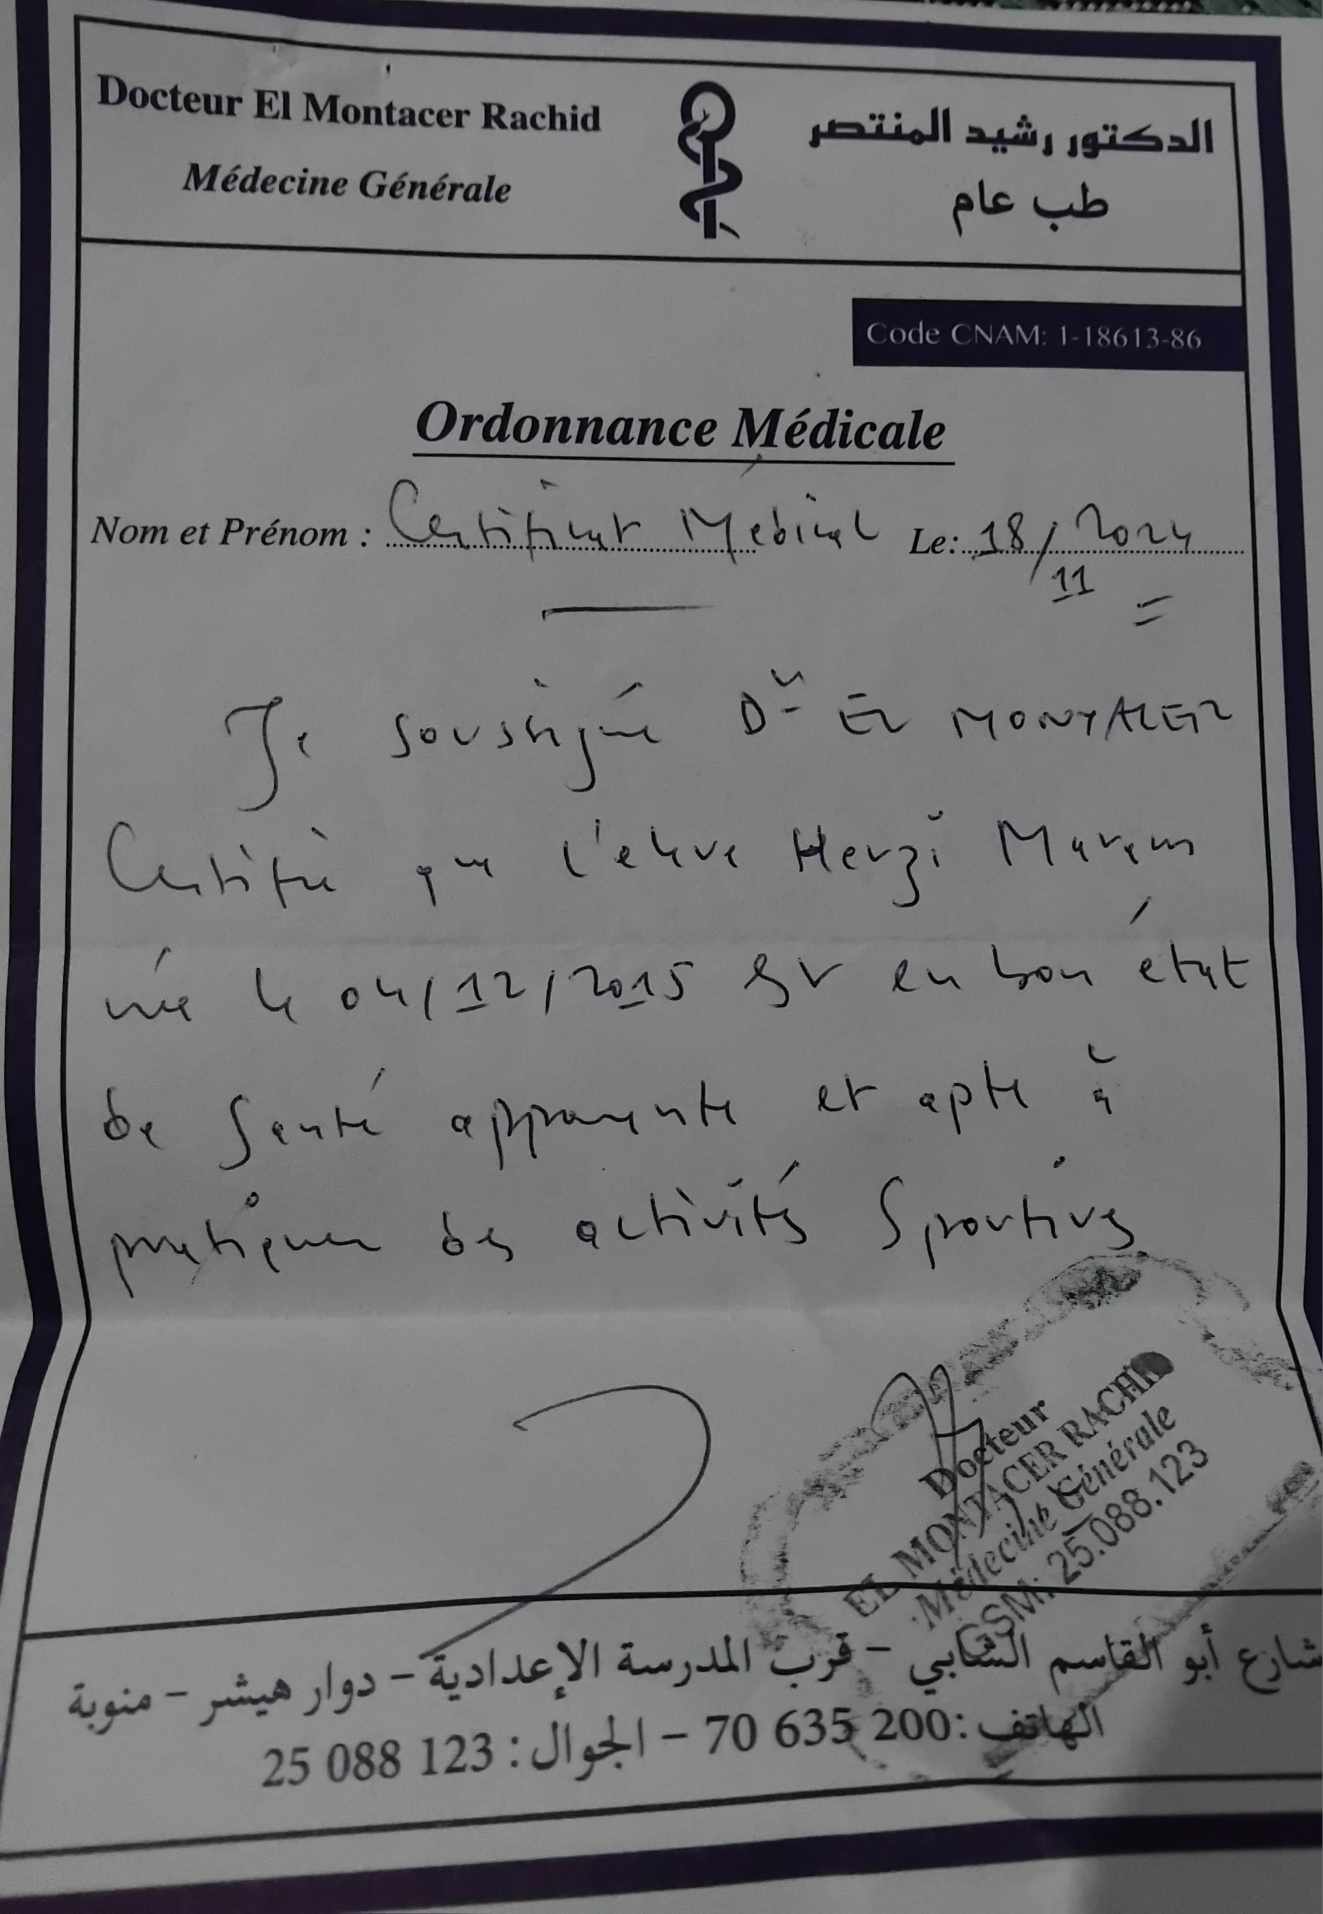 Docteur El Montacer Rachid
Médecine Générale
الدكتور رشيد المنتصر
طب عام
Code CNAM: 1-18613-86
Ordonnance Médicale
Nom et Prénom : Certificat Medical Le: 18/11/2024
Je soussigné Dr EL MONTACER
Certifie que l'eleve Herzi Maram
née le 04/12/2015 est en bon état
de Santé apparente et apte à
pratiquer des activités Sportives
Docteur
EL MONTACER RACHID
Médecine Générale
GSM: 25.088.123
شارع أبو القاسم الشابي - قرب المدرسة الإعدادية - دوار هيشر - منوبة
الهاتف : 70 635 200 - الجوال : 25 088 123